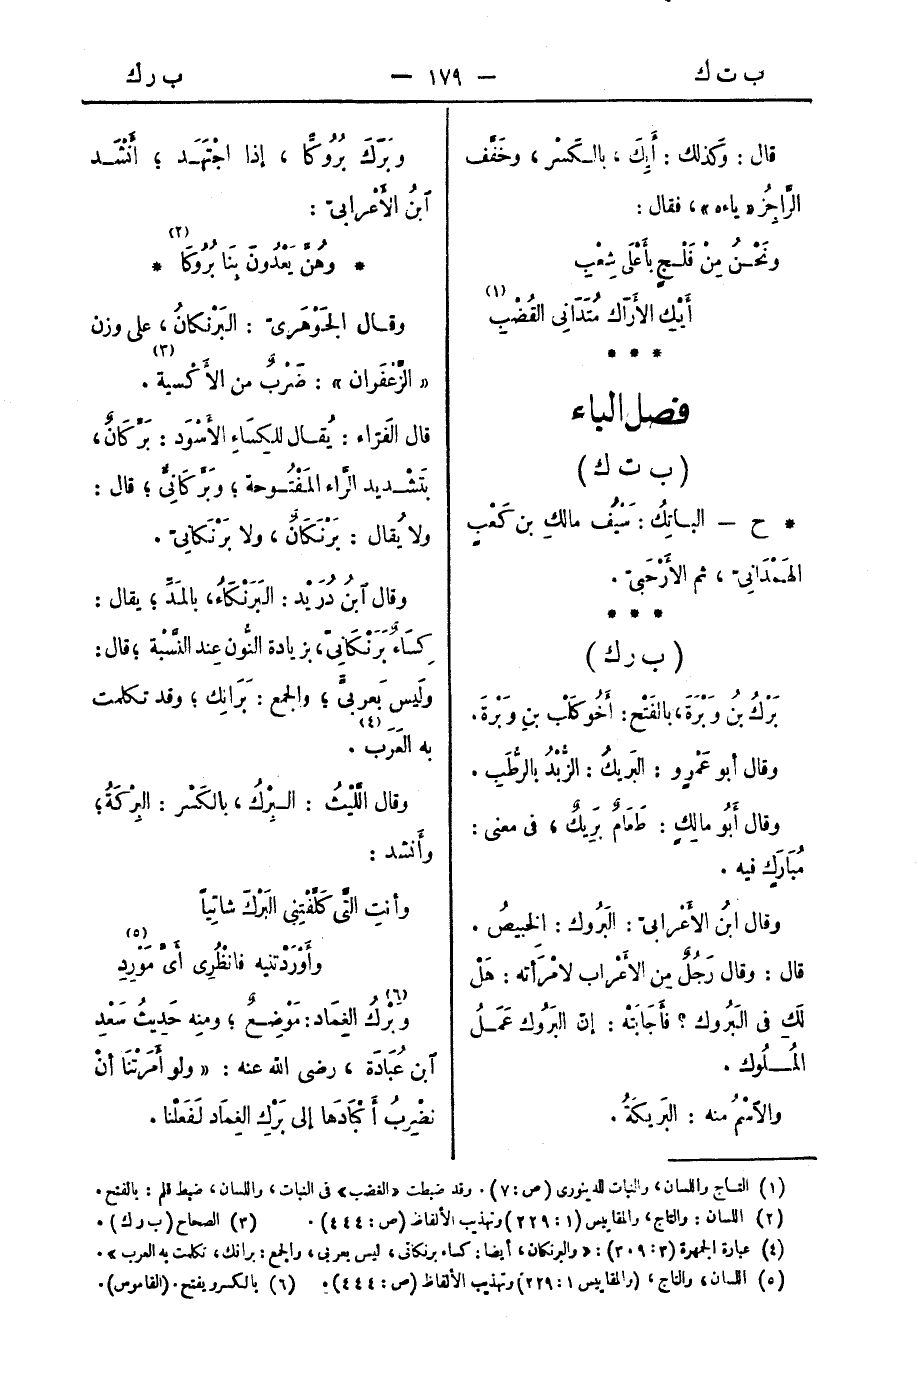 ب ت ك — ١٧٩ — ب ر ك
قال : وَكذلك : أَيِكَ ، بالكَسْر ، وخَفَّف
الرَّاجِزُ « ياءه » ، فقال :
ونَحْـنُ مِنْ فَلْـجٍ بأَعْلَى شِعْبِ
أَيْكِ الأَرَاك مُتَدَانِى القُضْبِ (١)
* * *
فصل الباء
( ب ت ك )
* ح – الباتِكُ : سَيْف مالك بن كَعْبٍ
الهَمْدَانىّ ، ثم الأَرْحَبىّ .
* * *
( ب ر ك )
بَرْكُ بنُ وَبْرَةَ ، بالفَتْح : أَخُو كَلْب بنِ وَبْرَةَ .
وقال أبو عَمْرٍو : البَرِيكُ : الزُّبْدُ بالرُّطَبِ .
وقال أَبُو مالِكٍ : طَعَامٌ بَرِيكٌ ، فى معنى :
مُبَارَكٍ فيه .
وقال ابنُ الأَعْرابىّ : البَرُوك : الخَبِيصُ .
قال : وقال رَجُلٌ مِن الأَعْراب لامْرَأته : هَلْ
لَكِ فى البَرُوك ؟ فأَجَابَتْه : إنّ البَرُوك عَمَـلُ
المُـلُوك .
والاَسْمُ منه : البَرِيكَةُ .
وبَرَّكَ بُرُوكًا ، إذا اجْتَهَـد ؛ أَنْشَـد
ٱبنُ الأَعْرابىّ :
* وهُنَّ يَعْدُونَ بِنَا بُرُوكَا * (٢)
وقال الجَوْهَرىّ : البَرْنكانُ ، على وزن
« الزَّعْفَران » : ضَرْبٌ من الأَكْسية . (٣)
قال الفَرّاء : يُقـال للكِسَاءِ الأَسْوَد : بَرَّكَانٌ ،
بتَشْـديد الرَّاء المَفْتُـوحة ؛ وبَرَّكَانِىٌّ ؛ قال :
ولا يُقال : بَرْنَكَانٌ ، ولا بَرْنَكانِىّ .
وقال ٱبنُ دُرَيْد : البَرَنْكَاءُ ، بالمَدِّ ؛ يقال :
كِسَاءٌ بَرَنْكَانِىّ ، بزيادة النُّون عند النِّسْبَة ؛ قال :
ولَيس بَعربىٍّ ؛ والجمع : بَرَانِك ؛ وقد تكلمت
به العَرَب . (٤)
وقال اللَّيْثُ : البِرْكُ ، بالكَسْر : البِرْكَةُ ؛
وأَنشد :
وأنتِ الَّتى كَلَّفْتِنِى البَرْكَ شاتِياً
وأَوْرَدْتنيه فانْظُرِى أىَّ مَوْرِدِ (٥)
وبَرْكُ الغِمَاد : مَوْضِـعٌ ؛ ومنه حَدِيثُ سَعْد (٦)
ٱبن عُبَادَة ، رضى الله عنه : « ولو أَمَرْتَنَا أنْ
نضْرِبُ أَكْبَادَهَا إلى بَرْكِ الغِمَاد لَفَعَلْنا .
(١) التاج واللسان ، والنبات للدينورى (ص : ٧) . وقد ضبطت «القضب» فى النبات ، واللسان ، ضبط قلم : بالفتح .
(٢) اللسان : والتاج ، والمقاييس (١ : ٢٢٩) وتهذيب الألفاظ (ص : ٤٤٤) . (٣) الصحاح (ب ر ك) .
(٤) عبارة الجمهرة (٣ : ٣٠٩) : « والبرنكان ، أيضا : كساء برنكانى ، ليس بعربى ، والجمع : برانك ، تكلمت به العرب » .
(٥) اللسان ، والتاج ، (والمقاييس ١ : ٢٢٩) وتهذيب الألفاظ (ص : ٤٤٤) . (٦) بالكسر ويفتح . (القاموس) .